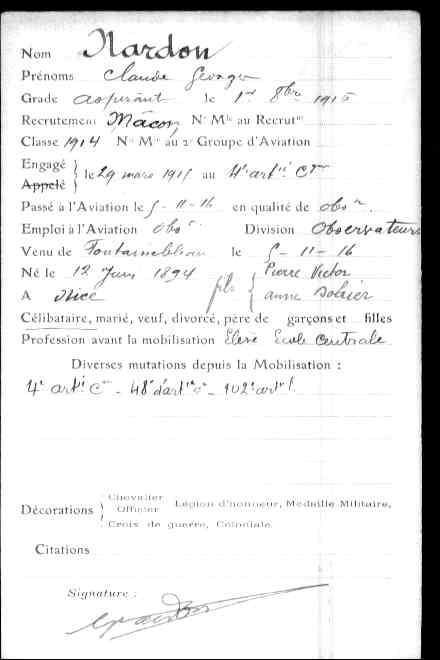 Nom Nardon
Prénoms Claude Georges
Grade aspirant le 1er 8bre 1915
Recrutement Mâcon No Mle au Recrutnt
Classe 1914 No Mle au 2e Groupe d'Aviation
Engagé
Appelé
le 29 mars 1915 au 4e artie Cne
Passé à l'Aviation le 5-11-16 en qualité de obsr
Emploi à l'Aviation Obsr Division Observateurs
Venu de Fontainebleau le 5-11-16
Né le 12 Juin 1894 fils Pierre Victor
A Nice anne
Célibataire, marié, veuf, divorcé, père de garçons et filles
Profession avant la mobilisation Elève Ecole Centrale
Diverses mutations depuis la Mobilisation :
4e artie Cne - 48e d'artie Cne - 102e art
Décorations
Chevalier
Officier
Légion d'honneur, Médaille Militaire,
Croix de guerre, Coloniale.
Citations
Signature :